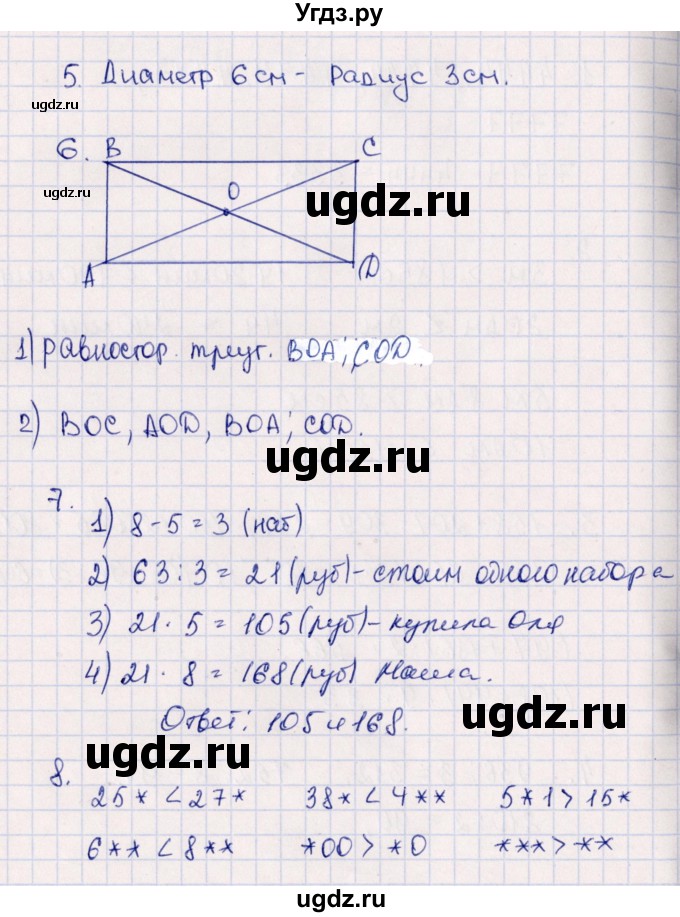 Угдз.ру
5. Диаметр 6 см - Радиус 3 см.
ugdz.ru
6. B C
O
ugdz.ru
ugdz.ru
A D
1) Равностор. треуг. BOA; COD.
ugdz.ru
2) BOC, AOD, BOA; COD.
ugdz.ru
7.
1) 8 - 5 = 3 (наб)
2) 63 : 3 = 21 (руб) - стоим одного набора
ugdz.ru
3) 21 · 5 = 105 (руб) - купила Оля
4) 21 · 8 = 168 (руб) Наша.
Ответ: 105 и 168.
ugdz.ru
ugdz.ru
8.
25* < 27* 38* < 4** 5*1 > 15*
6** < 8** *00 > *0 *** > **
ugdz.ru